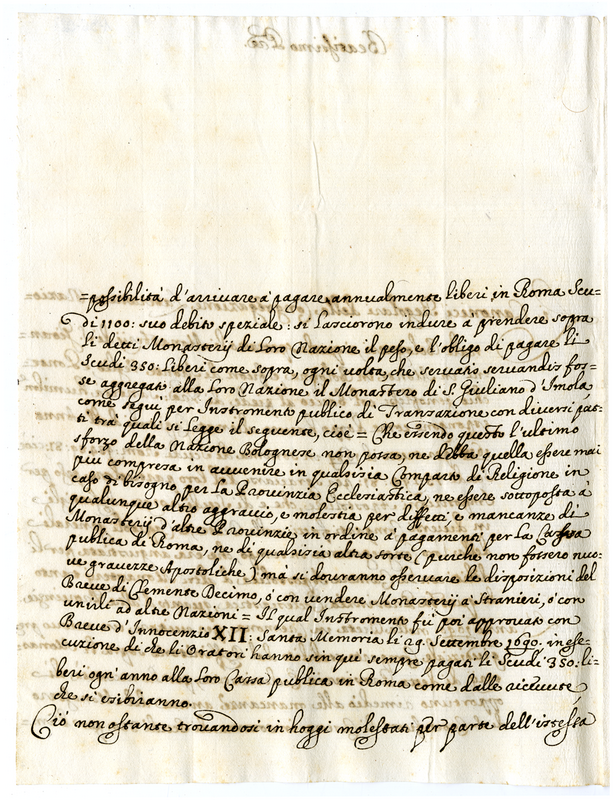 =possibilità d'arrivare à pagare annualmente liberi in Roma Scu=
di 1100: suo debito speziale: si lasciorono indure a prendere sopra
li detti Monasterij di Loro Nazione il peso, e l'obligo di pagare li
Scudi 350: Liberi come sopra, ogni volta, che servatis servandis fos=
se aggregato alla Loro Nazione il Monastero di S. Giuliano d'Imola
come seguì per Instromento publico di Transazione con diversi pat=
ti trà quali si Legge il seguente, cioè = Che essendo questo l'ultimo
sforzo della Nazione Bolognese non possa, ne debba quella essere mai
più compresa in avvenire in qualsisia Compara di Religione in
caso di bisogno per La Provinzia Ecclesiastica, ne essere sottoposta à
qualunque altro aggravio, e molestia per diffetti, e mancanze di
Monasterij d'altre Provinzie in ordine à pagamenti per La Cassa
publica di Roma, ne di qualsisia altra sorte (purche non fossero nuo=
ve gravezze Apostoliche) mà si dovranno osservare le disposizioni del
Breve di Clemente Decimo, ò con vendere Monasterij à Stranieri, ò con
unirli ad altre Nazioni = Il qual Instromento fù poi approvato con
Breve d'Innocenzio XII: Santa Memoria li 29. Settembre 1690. in ese=
cuzione di che li Oratori hanno sin quì sempre pagati li Scudi 350: li=
beri ogn'anno alla Loro Cassa publica in Roma come dalle ricevute
che si esibiranno.
Ciò non ostante trovandosi in hoggi molestati per parte dell'istessa